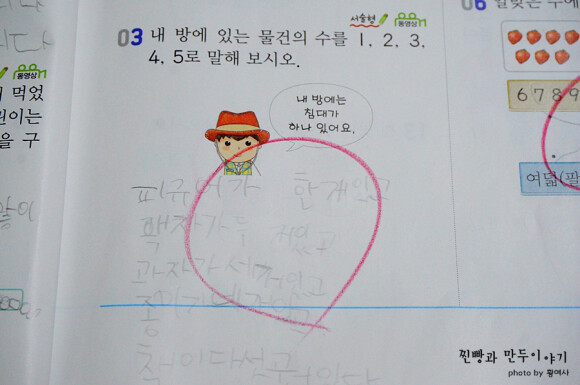 서술형
동영상
03 내 방에 있는 물건의 수를 1, 2, 3,
4, 5로 말해 보시오.
내 방에는
침대가
하나 있어요.
피규어가 한개있고
책자가두 개있고
과자가세개있고
종이가네개있고
책이다섯
동영상
먹었
을 구
06
6 7 8 9
여덟(팔
찐빵과 만두이야기
photo by 황여사